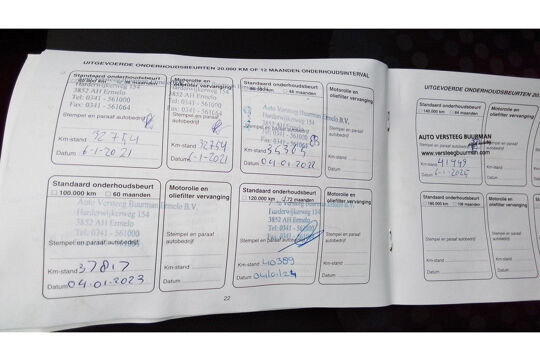 UITGEVOERDE ONDERHOUDSBEURTEN 20.000 KM OF 12 MAANDEN ONDERHOUDSINTERVAL
Standaard onderhoudsbeurt
Harderwijkerweg 154
3852 AH Ermelo
Tel: 0341 - 561000
Fax: 0341 - 561664
Stempel en paraaf
autobedrijf
Km-stand 32754
Datum 6-1-2021
Motorolie en
oliefilter vervanging
Tel: 0341 - 561000
Fax: 0341 - 561664
Stempel en paraaf
autobedrijf
Km-stand 32754
Datum 6-1-2021
Standaard onderhoudsbeurt
Auto Versteeg Buurman Ermelo B.V.
Harderwijkerweg 154
3852 AH Ermelo
Km-stand
Datum 04.01.2022
Motorolie en
oliefilter vervanging
Stempel en paraaf
autobedrijf
Km-stand
Datum
Standaard onderhoudsbeurt
100.000 km 60 maanden
Auto Versteeg Buurman Ermelo B.V.
Harderwijkerweg 154
3852 AH Ermelo
Stempel en paraaf autobedrijf
Km-stand 37817
Datum 04.01.2023
Motorolie en
oliefilter vervanging
Stempel en paraaf
autobedrijf
Km-stand
Datum
Standaard onderhoudsbeurt
120.000 km 72 maanden
Harderwijkerweg 154
3852 AH Ermelo
Tel: 0341 - 561000
Km-stand 40389
Datum
Motorolie en
oliefilter vervanging
Stempel en paraaf
autobedrijf
Km-stand
Datum
22
UITGEVOERDE ONDERHOUDSBEURTEN 20.
Standaard onderhoudsbeurt
140.000 km
AUTO VERSTEEG BUURMAN
www.versteegbuurman.com
Km-stand 41449
Datum 6-1-2025
Motorolie en
oliefilter vervanging
Stempel en paraaf
autobedrijf
Km-stand
Datum
Standaard onderhoudsbeurt
Stempel en paraaf autobedrijf
Km-stand
Datum
Motorolie en
oliefilter vervanging
Stempel en paraaf
autobedrijf
Km-stand
Datum